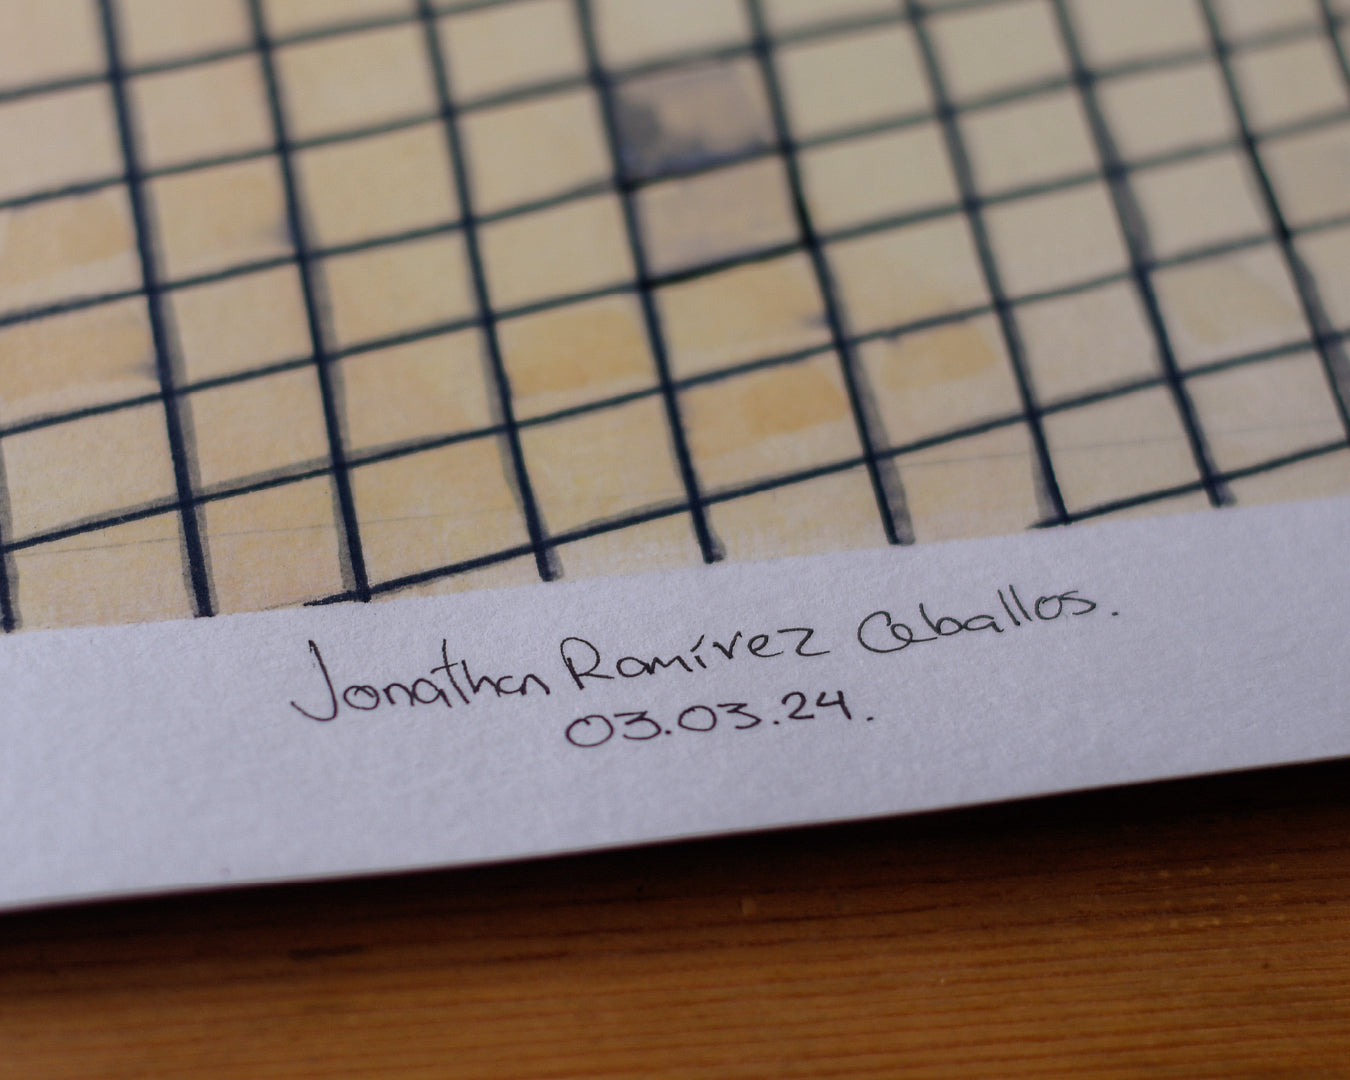 Jonathan Ramírez Ceballos.
03.03.24.